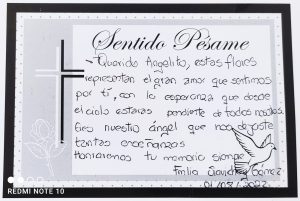 Sentido Pésame
Querido Angelito, estas flores
representan el gran amor que sentimos
por ti, con la esperanza que desde
el cielo estaras pendiente de todos nosotros.
Eres nuestro ángel que nos dejaste
tantas enseñanzas
Honraremos tu memoria siempre
Familia Sanchez
REDMI NOTE 10